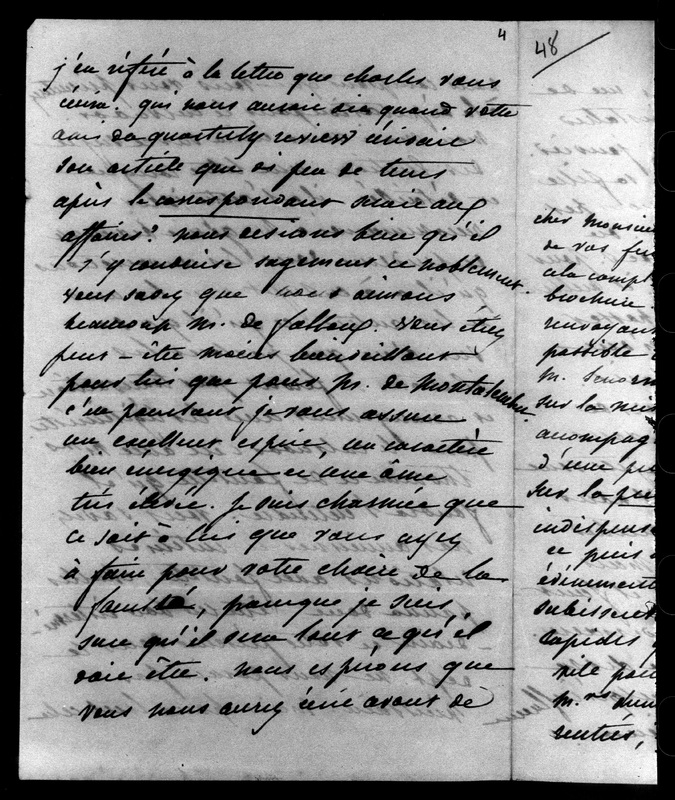 4
j'en réfère à la lettre que charles vous
écrira. qui nous aurait dit quand votre
ami du quarterly review écrivait
son article que si peu de tems
après le correspondant serait aux
affaires? nous désirons bien qu'il
s'y conduise sagement et noblement.
vous savez que nous aimons
beaucoup M. de falloux. vous êtes
peut-être moins bienveillant
pour lui que pour M. de Montalembert.
c'est pourtant, je vous assure
un excellent esprit, un caractère
bien énergique et une âme
très élevée. je suis charmée que
ce soit à lui que vous ayez
à faire pour votre chaire de la
faculté, parceque je suis
sure qu'il sera tout ce qu'il
doit être. nous espérons que
vous nous aurez écrit avant de
48
cher monsieu
de vos
a la compl
brochure
renvoyant
possible
M.
sur la mis
accompag
d'une pr
sur la pre
indispens
ce puis
évènement
subissent
rapides
vite pour
M.rs
rentrés,